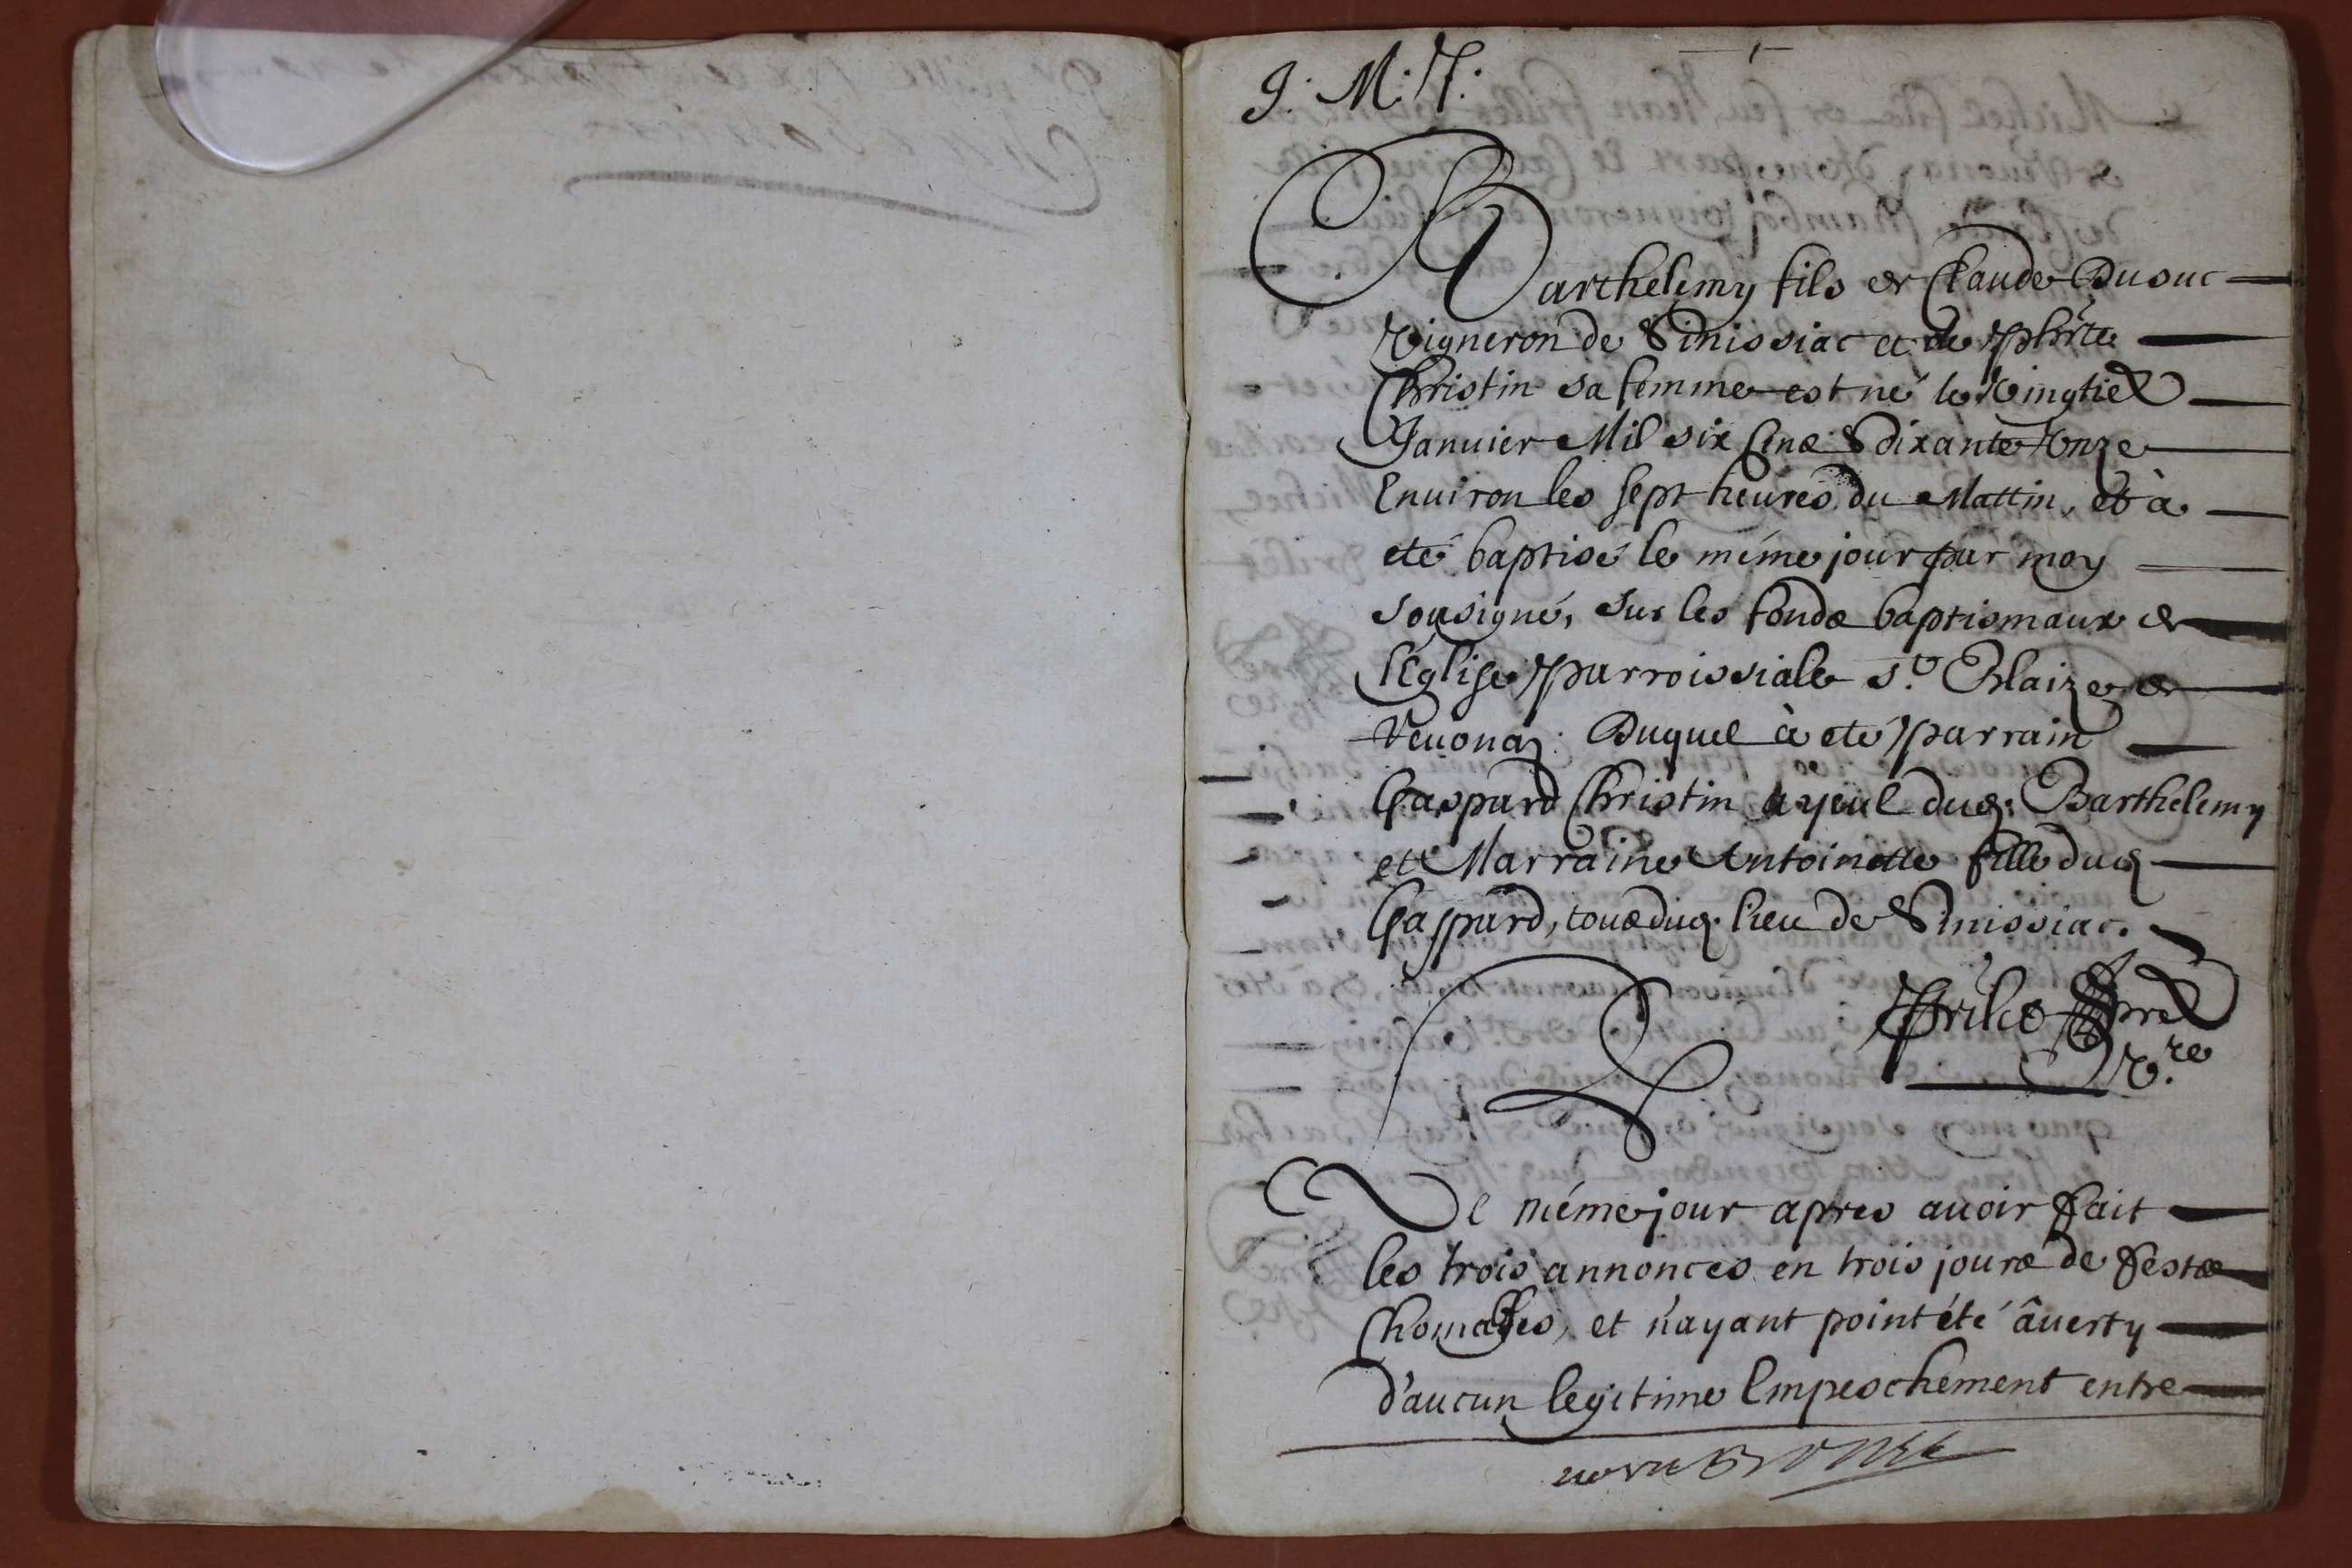 J. M. J.
Barthelemy fils de Claude Duouc
Vigneron de Sinissiac et de Phlrte
Christin sa femme est né le Vingtie
Januier Mil six Cens Soixante Onze
Enuiron les sept heures du Mattin, et à
eté baptisé le méme jour par moy
sousigné, sur les fonds baptismaux de
l'Eglise Parroissiale st. Blaize de
Veuonas: Duquel à eté Parrain
Gaspard Christin ayeul dud. Barthelemy
et Marraine Antoinette fille dud
Gaspard, tous dud. lieu de Sinissiac.
pre
V.re
Le méme jour apres auoir fait
les trois annonces en trois jours de festes
Chomables, et n'ayant point été âuerty
d'aucun legitime Empeschement entre